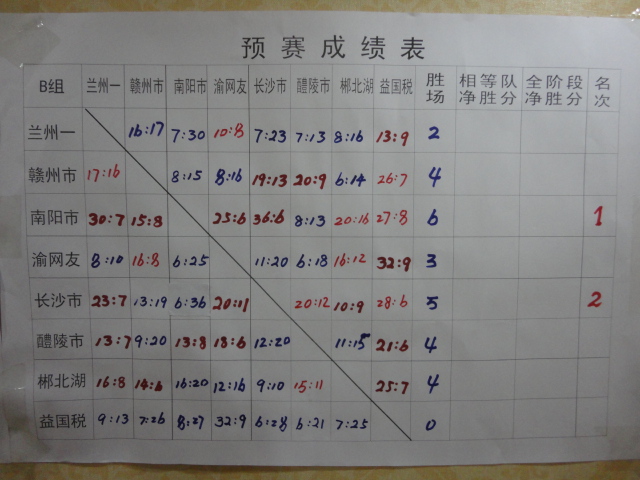 预赛成绩表
B组 兰州一 赣州市 南阳市 渝网友 长沙市 醴陵市 郴北湖 益国税 胜场 相等队净胜分 全阶段净胜分 名次
兰州一 16:17 7:30 10:8 7:23 7:13 8:16 13:9 2
赣州市 17:16 8:15 8:16 19:13 20:9 6:14 26:7 4
南阳市 30:7 15:8 25:6 36:6 8:13 20:16 27:8 6 1
渝网友 8:10 16:8 6:25 11:20 6:18 16:12 32:9 3
长沙市 23:7 13:19 6:36 20:11 20:12 10:9 28:6 5 2
醴陵市 13:7 9:20 13:8 18:6 12:20 11:15 21:6 4
郴北湖 16:8 14:6 16:20 12:16 9:10 15:11 25:7 4
益国税 9:13 7:26 8:27 32:9 6:28 6:21 7:25 0